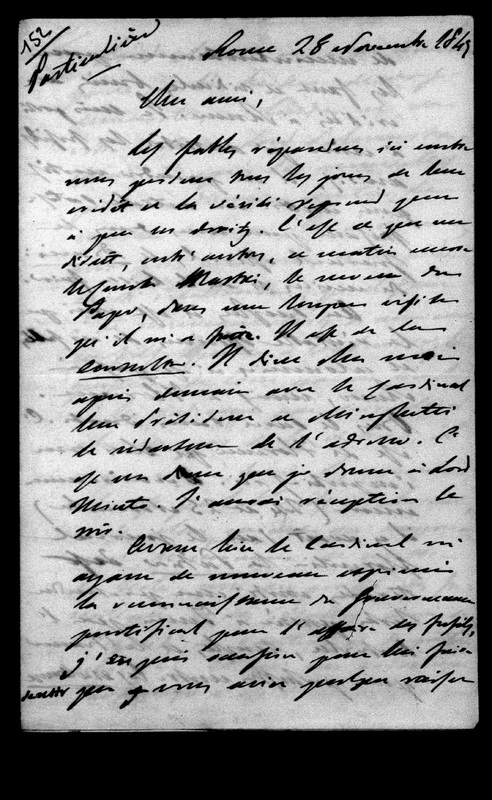 152
Particulière
Rome 28 Novembre 1847
Cher ami,
Les fables répandues ici contre
nous perdent tous les jours de leur
crédit et la vérité reprend peu
à peu ses droits. C'est ce que me
disait, entr'autres, ce matin encore
le Comte Mastai, le neveu du
Pape, dans une longue visite
qu'il m'a faite. Il est de la
Consulta. Il dine chez moi
après demain avec le Cardinal
leur Président et Minghetti
le rédacteur de l'adresse. Ce
est un diner que je donne à Lord
Minto. J'aurai réception le
soir.
Avant hier le Cardinal m'
ayant de nouveau exprimé
la reconnaissance du Gouvernement
pontifical pour l'affaire des fusils,
j'en pris occasion pour lui faire
sentir que vous aviez quelque raison